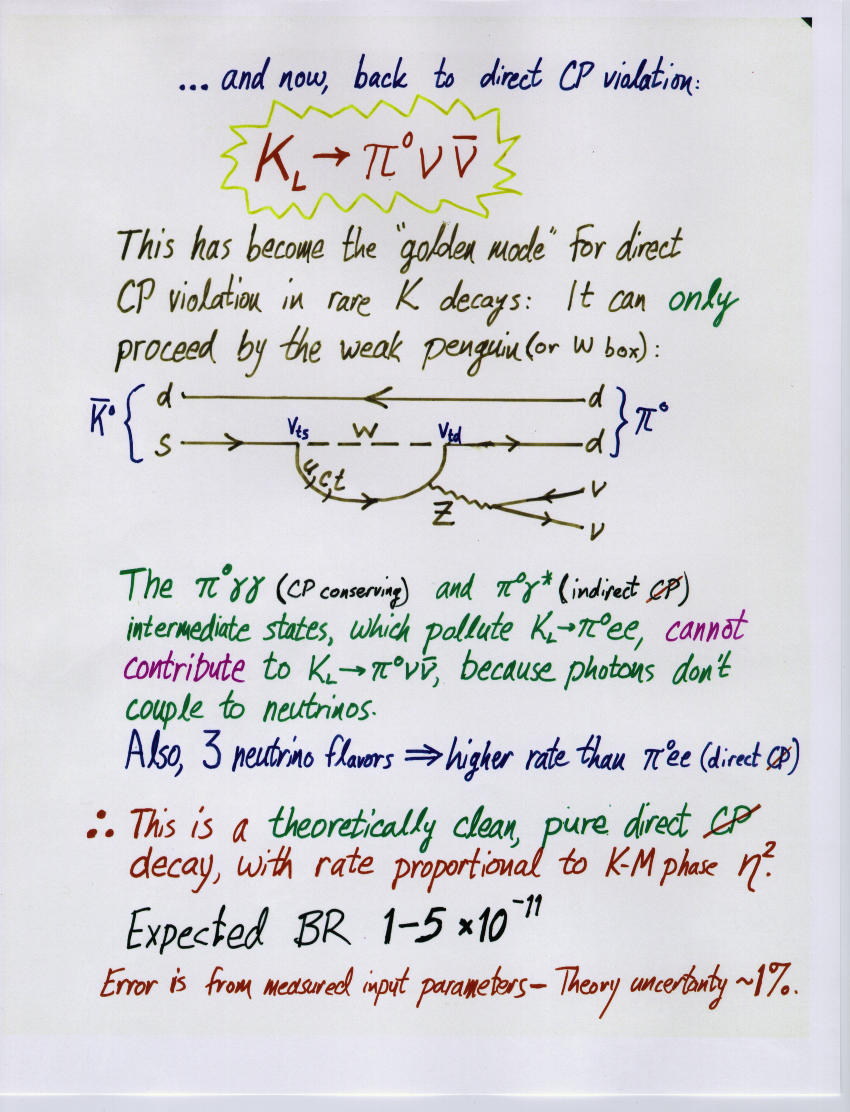 ... and now, back to direct CP violation:
K_L → π⁰ν ν̄
This has become the "golden mode" for direct
CP violation in rare K decays: It can only
proceed by the weak penguin (or W box):
K̄⁰ { d d } π⁰
s V_ts W V_td d
u, c, t
Z ν
ν
The π⁰γγ (CP conserving) and π⁰γ* (indirect C̸P̸)
intermediate states, which pollute K_L→π⁰ee, cannot
contribute to K_L→π⁰νν̄, because photons don't
couple to neutrinos.
Also, 3 neutrino flavors ⇒ higher rate than π⁰ee (direct C̸P̸)
∴ This is a theoretically clean, pure direct C̸P̸
decay, with rate proportional to K-M phase η².
Expected BR 1-5 ×10⁻¹¹
Error is from measured input parameters- Theory uncertanty ~1%.